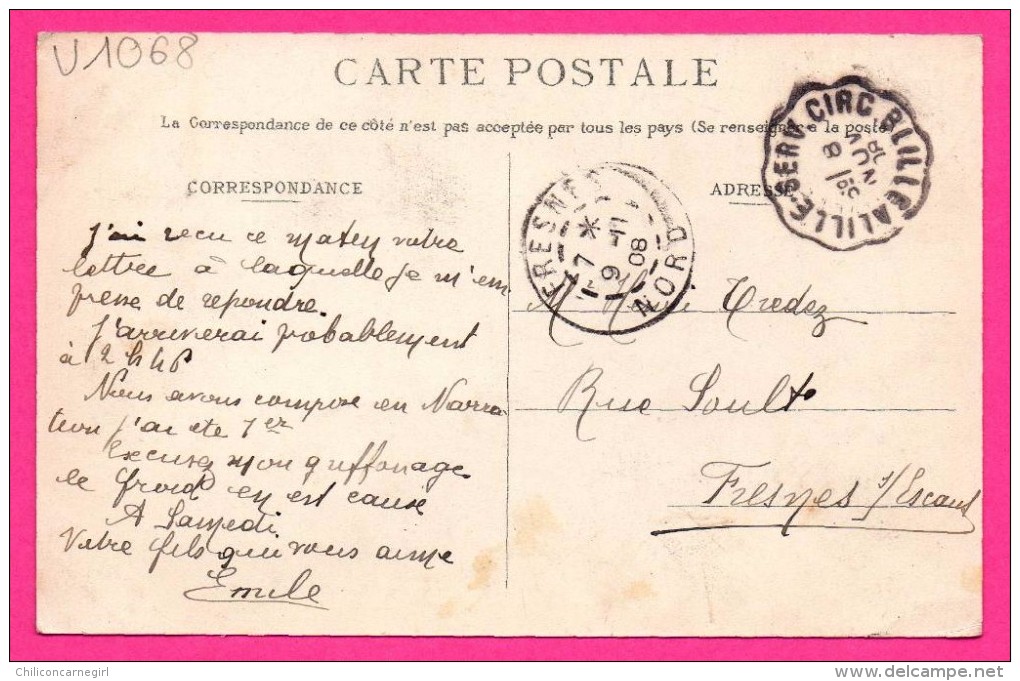 V1068
CARTE POSTALE
La Correspondance de ce côté n'est pas acceptée par tous les pays (Se renseigner à la poste)
CORRESPONDANCE
ADRESSE
SERV. CIRC B LILLE A LILLE
8
NOV
FRESNES
NORD
7 * 9 -11 08
J'ai recu ce maten votre
lettre à laquelle je m'em
presse de repondre.
J'arriverai probablement
à 2 h 46
Nous avons compose en Narra-
tion j'ai ete 1er
Excusez mon griffonage
le froid en est cause
A Samedi
Votre fils qui vous aime
Emile
M Tredez
Rue Soult
Fresnes s/Escaut
Chiliconcarnegirl
www.delcampe.net